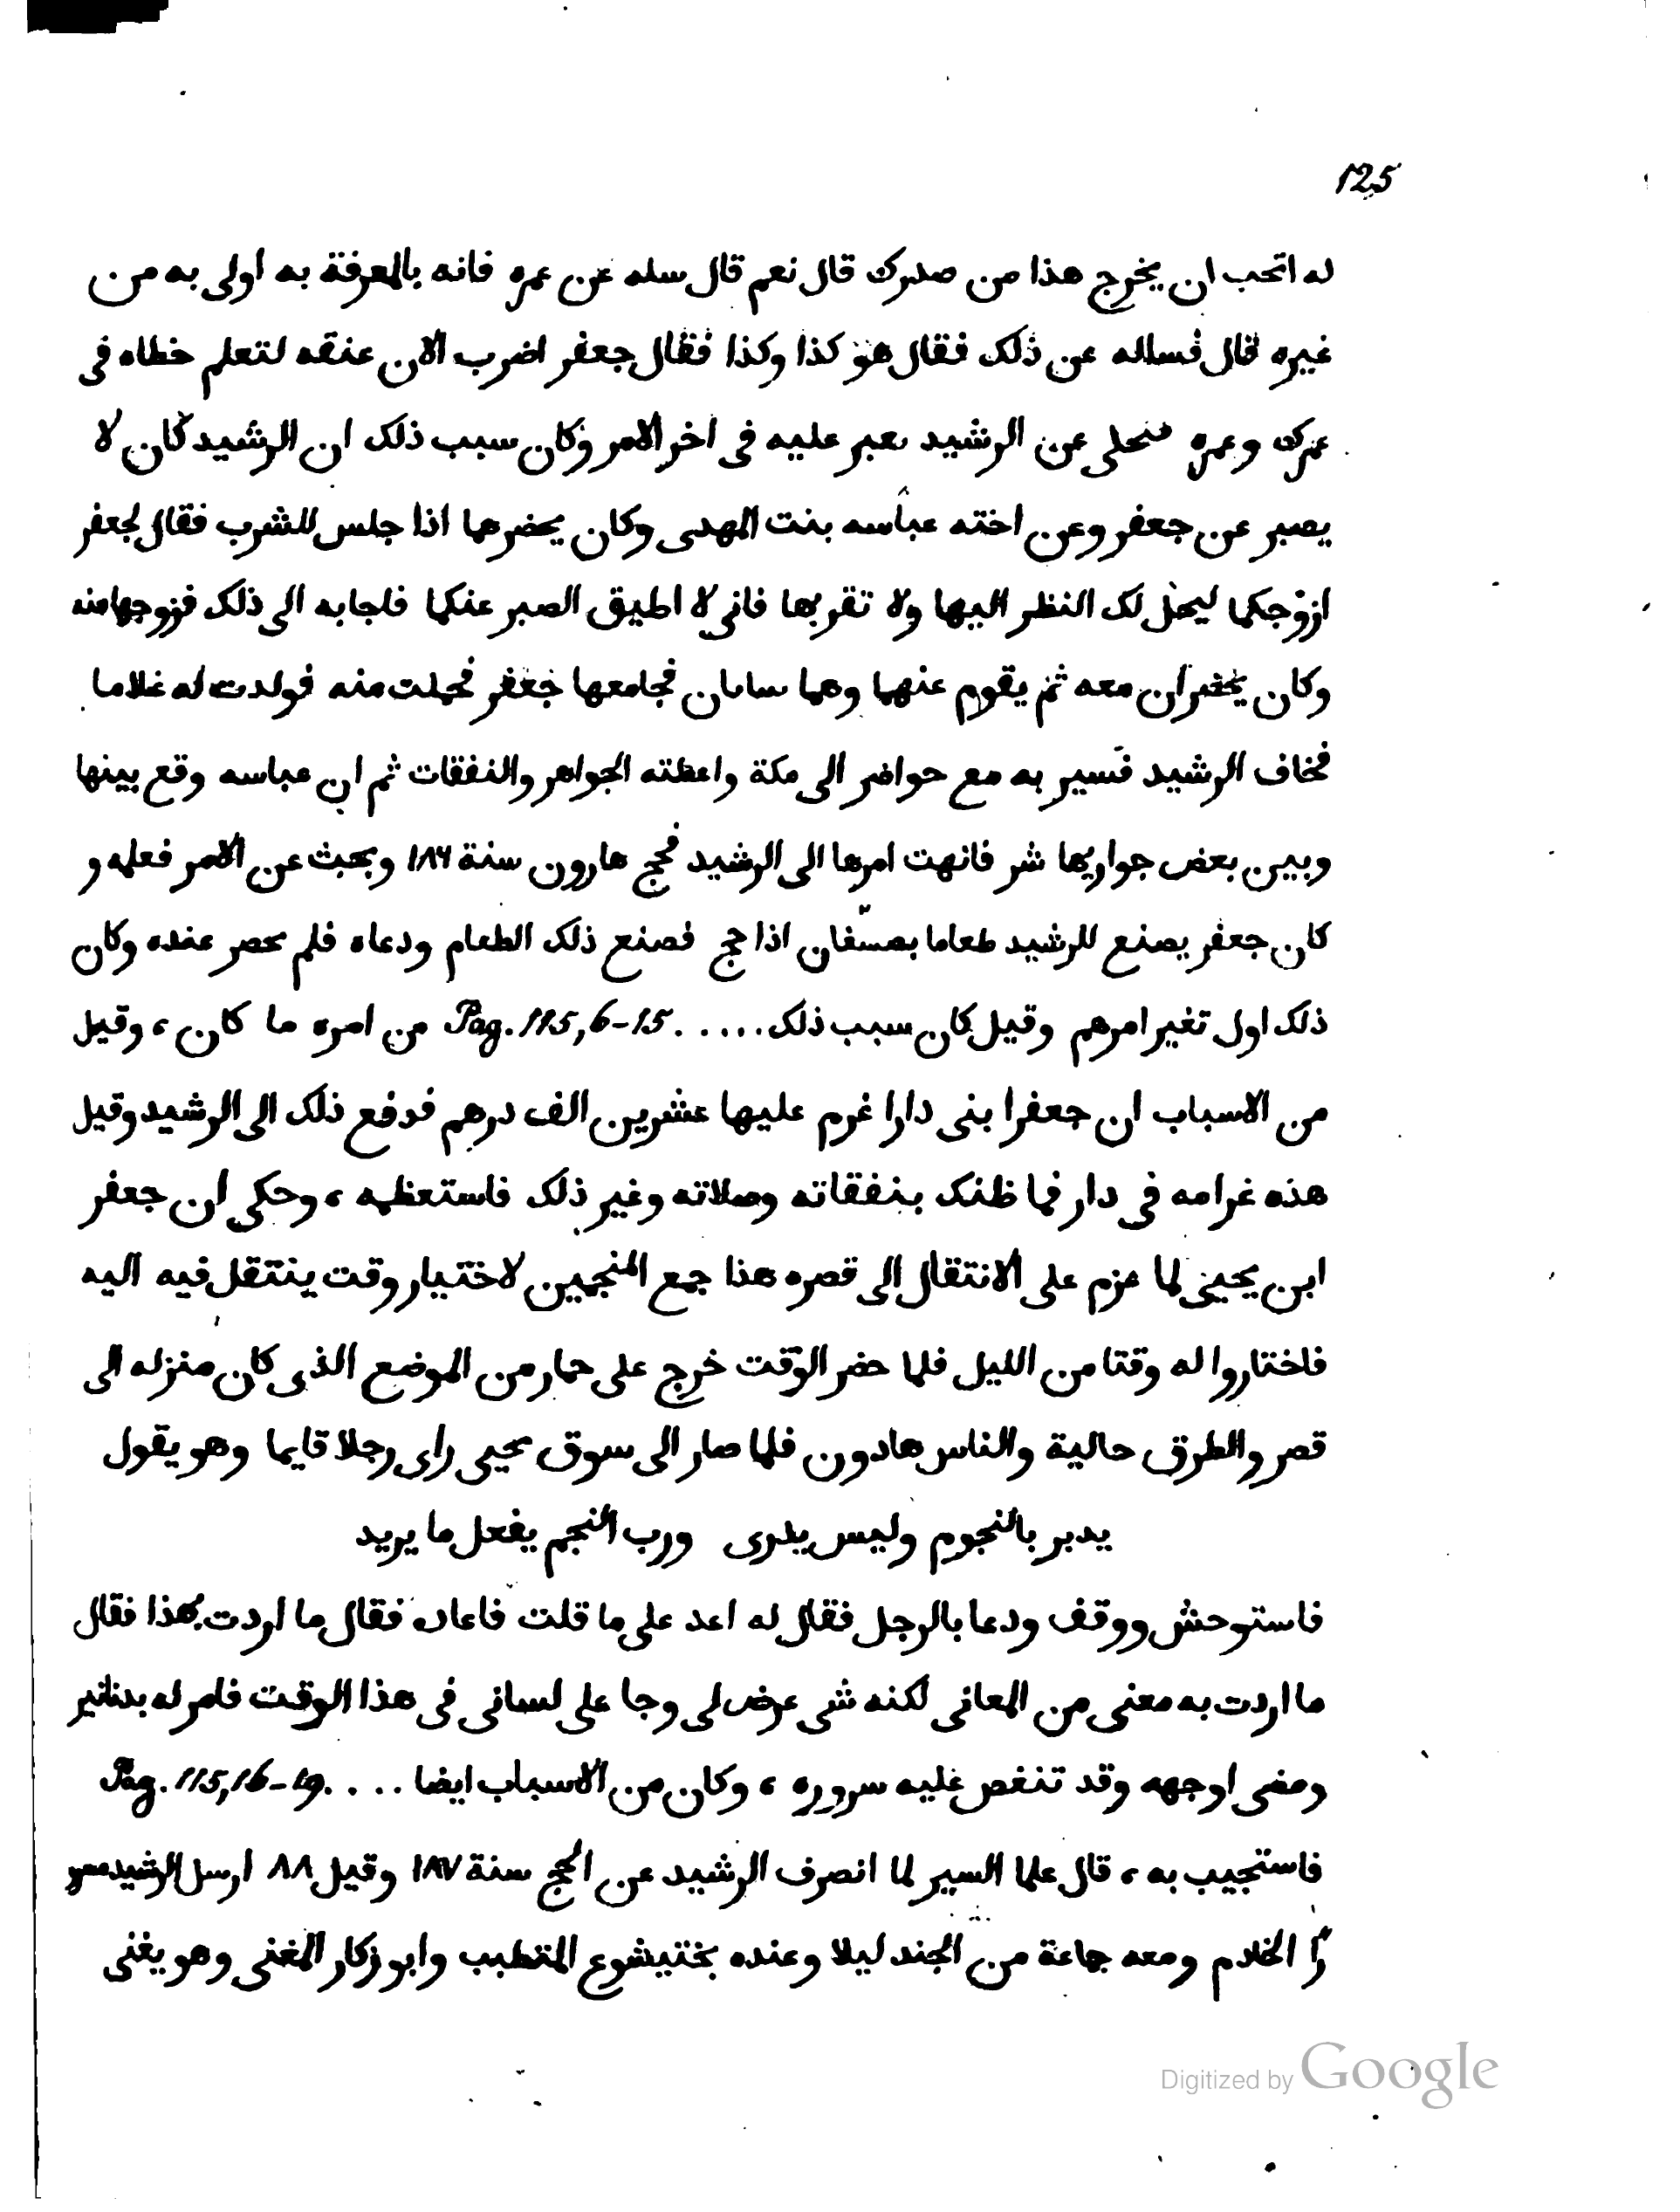 125
له اتحب ان يخرج هذا من صدرك قال نعم قال سله عن عمره فانه بالمعرفة به اولى به من
غيره قال فساله عن ذلك فقال هو كذا وكذا فقال جعفر اضرب الان عنقه لتعلم خطاه فى
عمرك وعمره عن الرشيد عليه فى اخر الامر وكان سبب ذلك ان الرشيد كان لا
يصبر عن جعفر وعن اخته عباسه بنت المهدى وكان يحضرهما اذا جلس للشرب فقال لجعفر
ازوجكها ليحل لك النظر اليها ولا تقربها فانى لا اطيق الصبر عنكما فاجابه الى ذلك فزوجها منه
وكان يحضران معه ثم يقوم عنهما وهما سابان فجامعها جعفر فحملت منه فولدت له غلاما
فخاف الرشيد فسير به مع حواضر الى مكة واعطته الجواهر والنفقات ثم ان عباسه وقع بينها
وبين بعض جواريها شر فانهت امرها الى الرشيد فحج هارون سنة ١٨٦ وبحث عن الامر فعلمه و
كان جعفر يصنع للرشيد طعاما بعسفان اذا حج فصنع ذلك الطعام ودعاه فلم يحصر عنده وكان
ذلك اول تغير امرهم وقيل كان سبب ذلك ..... Pag. 115,6-15 من امره ما كان ، وقيل
من الاسباب ان جعفرا بنى دارا غرم عليها عشرين الف درهم فدفع ذلك الى الرشيد وقيل
هذه غرامه فى دار فما ظنك بنفقاته وصلاته وغير ذلك فاستعظمه ، وحكى ان جعفر
ابن يحيى لما عزم على الانتقال الى قصره هذا جمع المنجمين لاختيار وقت ينتقل فيه اليه
فاختاروا له وقتا من الليل فلما حضر الوقت خرج على حمار من الموضع الذى كان منزله الى
قصر والطرق حالية والناس هادون فلما صار الى سوق يحيى راى رجلا قايما وهو يقول
يدبر بالنجوم وليس يدرى ورب النجم يفعل ما يريد
فاستوحش ووقف ودعا بالرجل فقال له اعد على ما قلت فاعاده فقال ما اردت بهذا فقال
ما اردت به معنى من المعانى لكنه شى عرض لى وجا على لسانى فى هذا الوقت فامر له بدنانير
ومضى اوجهه وقد تنغص عليه سروره ، وكان من الاسباب ايضا .... Pag. 115,16-19
فاستجيب به ، قال علما السير لما انصرف الرشيد عن الحج سنة ١٨٧ وقيل ٨٨ ارسل الرشيد مسرو
را الخادم ومعه جماعة من الجند ليلا وعنده بختيشوع المتطبب وابو زكار المغنى وهو يغنى
Digitized by Google